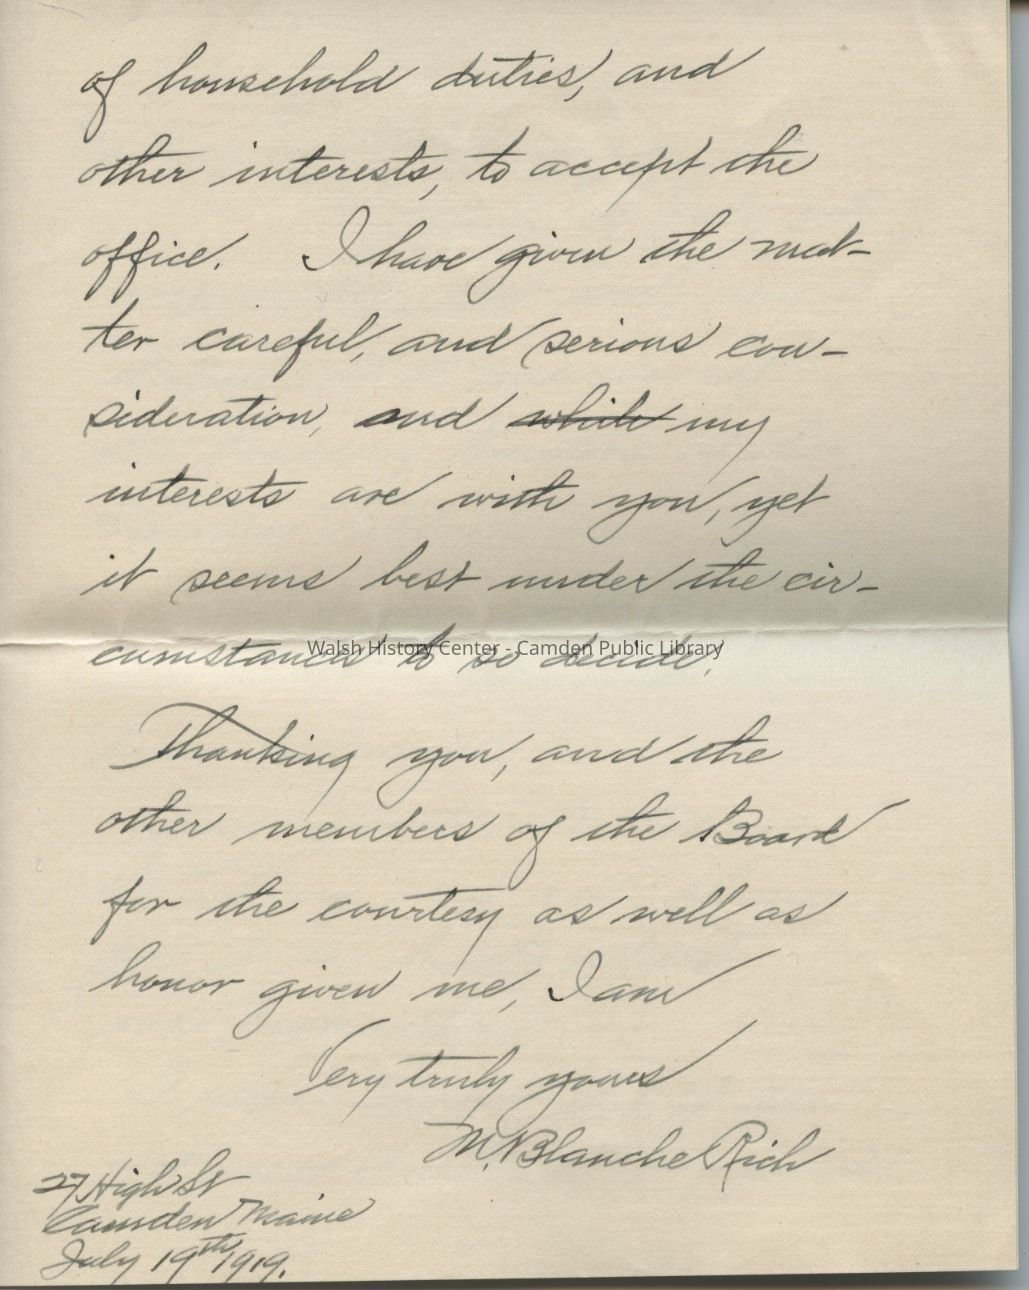 of household duties, and
other interests, to accept the
office. I have given the mat-
ter careful, and serious con-
sideration, and ~~while~~ my
interests are with you, yet
it seems best under the cir-
Walsh History Center - Camden Public Library
cumstances to so decide.
Thanking you, and the
other members of the Board
for the courtesy as well as
honor given me, I am
Very truly yours
M. Blanche Rich
27 High St
Camden Maine
July 19th 1919.